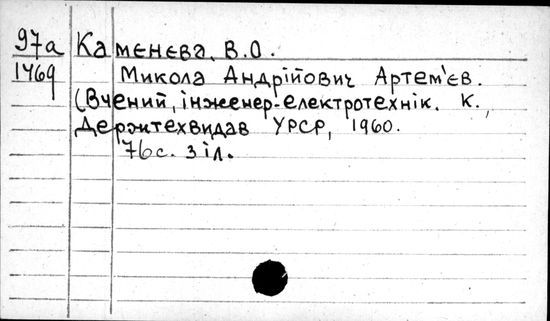 97а Камєнєва, В.О.
1469 Микола Андрійович Артем'єв.
(Вчений, інженер-електротехнік. К.,
Держтехвидав УРСР, 1960.
76с. з іл.